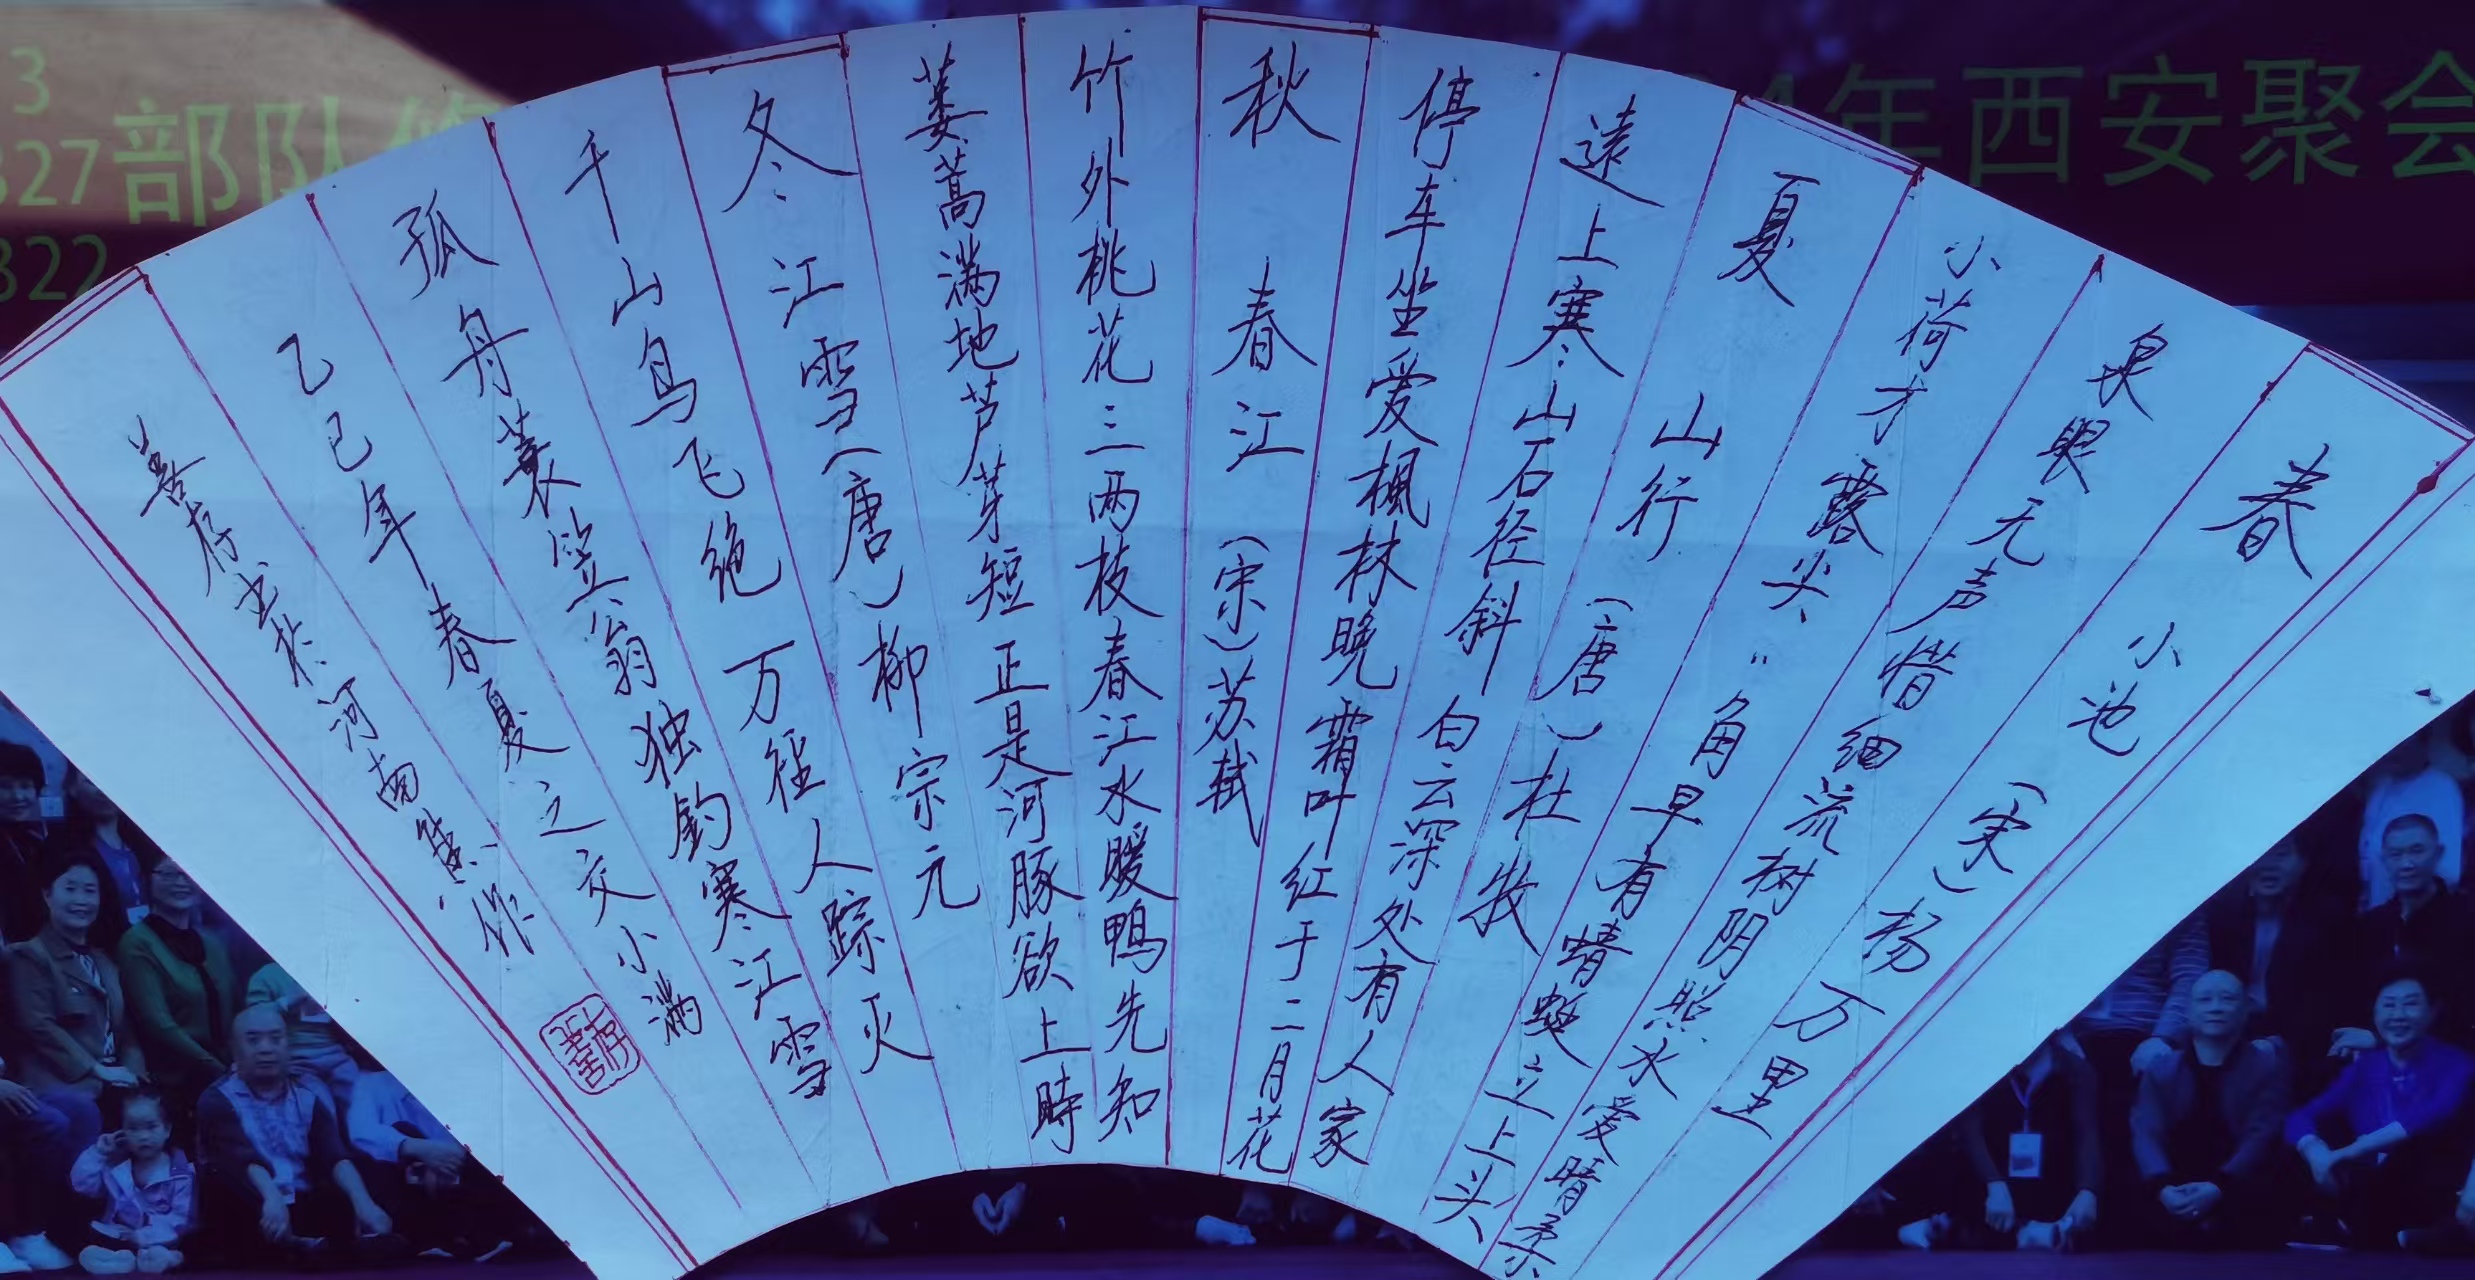 春 小池 （宋）杨万里
泉眼无声惜细流树阴照水爱晴柔
小荷才露尖〃角早有蜻蜓立上头
夏 山行 （唐）杜牧
遠上寒山石径斜白云深处有人家
停车坐爱楓林晚霜叶红于二月花
秋 春江 （宋）苏轼
竹外桃花三两枝春江水暖鸭先知
蒌蒿满地芦芽短正是河豚欲上時
冬 江雪（唐）柳宗元
千山鸟飞绝 万径人踪灭
孤舟蓑笠翁独钓寒江雪
乙巳年春夏之交小满
善存书於河南焦作
善存
3
327
322
部队
年西安聚会